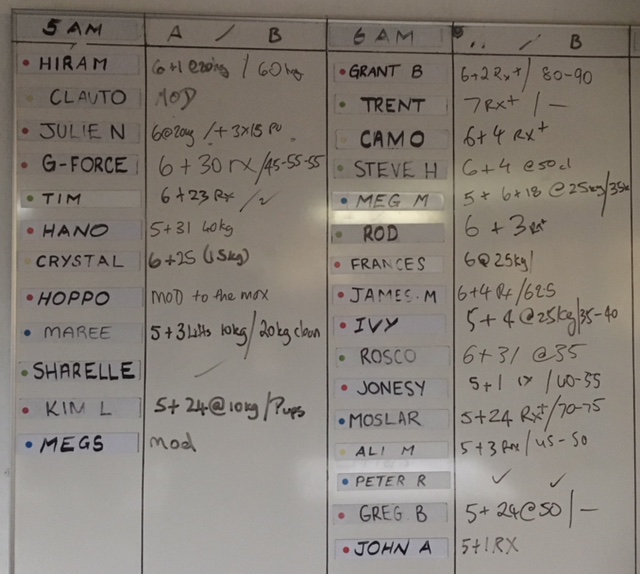 5 AM A / B
HIRAM 6+1 @20kg / 60kg
CLAUTO MOD
JULIE N 6@20kg / + 3x15 PU
G-FORCE 6 + 30 rx/45-55-55
TIM 6 + 23 Rx /
HANO 5+31 40kg
CRYSTAL 6+25 (15kg)
HOPPO MOD to the max
MAREE 5+3 10kg/20kg clean
SHARELLE /
KIM L 5+24@10kg/Pups
MEGS mod
6 AM / B
GRANT B 6+2 Rx+/ 80-90
TRENT 7 Rx+ / —
CAMO 6+4 Rx+
STEVE H 6+4 @50
MEG M 5 + 6+18 @25kg/35k
ROD 6 + 3
FRANCES 6@25kg/
JAMES.M 6+4 Rx/62.5
IVY 5+4@25kg/35-40
ROSCO 6+31 @35
JONESY 5+1 rx /
MOSLAR 5+24 Rx+/70-75
ALI M 5+3 Rx/45-50
PETER R ✓ ✓
GREG B 5+24@50/—
JOHN A 5+1 RX